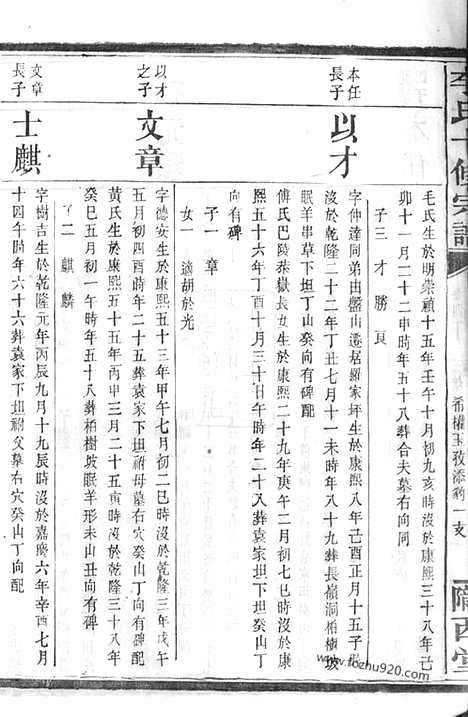 李氏十修宗譜
希權玉孜添利一支
隴西堂
毛氏生於明崇禎十五年壬午十月初九亥時沒於康熙三十八年己
卯十一月二十二申時年五十八葬合夫墓右向同
子三 才 勝 良
本任
長子
以才
字仲達同弟由盤山遷居羅家坪生於康熙八年己酉正月十五子時
沒於乾隆二十二年丁丑七月十一未時年八十九葬長嶺洞柏樹坡
眠羊串草下坦丁山癸向有碑配
傅氏巴陵葬嶽長女生於康熙二十年辛酉十二月初七巳時沒於康
熙五十六年丁酉十月三十日午時年二十八葬袁家坦下坦癸山丁
向有碑
子一 章
女一 適胡於光
以才
之子
文章
字德安生於康熙五十三年甲午七月初三酉時沒於乾隆三年戊午
五月初四酉時年二十五葬袁家下坦祔母墓右穴癸山丁向有碑配
黃氏生於康熙五十五年丙申三月二十五寅時沒於乾隆三十八年
癸巳五月初一午時年五十八葬柏樹坡眠羊形未山丑向有碑
子二 麒 麟
文章
長子
士麒
字樹吉生於乾隆元年丙辰九月十九辰時沒於嘉慶六年辛酉七月
十四午時年六十六葬袁家下坦祔父墓右穴癸山丁向配
www.fozhu920.com